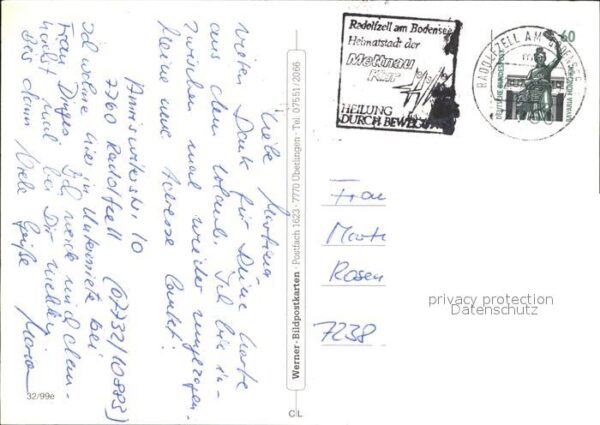 Liebe Martina
vielen Dank für Deine Karte
aus dem Urlaub. Ich bin in-
zwischen mal wieder umgezogen.
Meine neue Adresse lautet:
10
7760 Radolfzell (07732/10883)
Ich wohne hier in Untermiete bei
Frau Ich werde mich dem-
nächst mal bei Dir melden.
Bis dann Viele Grüße
32/99e
Werner-Bildpostkarten · Postfach 1623 · 7770 Überlingen · Tel. 07551/2066
CL
Radolfzell am Bodensee
Heimatstadt der
Mettnau
Kur
HEILUNG
DURCH BEWEGU
RADOLFZELL AM BODENSEE
60
DEUTSCHE BUNDESPOST
BAVARIA MÜNCHEN
Frau
Mart
Rosen
7238
privacy protection
Datenschutz